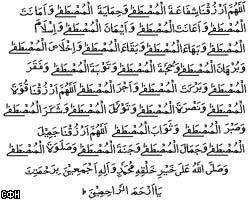 اَللّٰهُمَّ ارْزُقْنَا شَفَاعَةَ الْمُصْطَفٰى وَحِمَايَةَ الْمُصْطَفٰى وَاَمَانَتَ
الْمُصْطَفٰى وَاَعَانَتَ الْمُصْطَفٰى وَاِيْمَانَ الْمُصْطَفٰى وَاِسْلَامَ
الْمُصْطَفٰى وَبَهَاءَ الْمُصْطَفٰى وَبَقَاءَ الْمُصْطَفٰى وَاِخْلَاصَ الْمُصْطَفٰى
وَبُرْهَانَ الْمُصْطَفٰى وَمَحَبَّةَ الْمُصْطَفٰى وَتَوْبَةَ الْمُصْطَفٰى وَفَقْرَ
الْمُصْطَفٰى وَبَرَكَتَ الْمُصْطَفٰى وَاَجْرَ الْمُصْطَفٰى اَللّٰهُمَّ ارْزُقْنَا
الْمُصْطَفٰى وَنُصْرَةَ الْمُصْطَفٰى وَتَوَكُّلَ الْمُصْطَفٰى وَشُكْرَ الْمُصْطَفٰى
وَصَبْرَ الْمُصْطَفٰى وَثَوَابَ الْمُصْطَفٰى اَللّٰهُمَّ ارْزُقْنَا جَمِيْلَ
الْمُصْطَفٰى وَجَمَالَ الْمُصْطَفٰى وَجَنَّةَ الْمُصْطَفٰى وَصَلٰوةَ الْمُصْطَفٰى
وَصَلَّى اللّٰهُ عَلٰى خَيْرِ خَلْقِهٖ مُحَمَّدٍ وَّاٰلِهٖ اَجْمَعِيْنَ بِرَحْمَتِكَ
يَا اَرْحَمَ الرَّاحِمِيْنَ
C4H